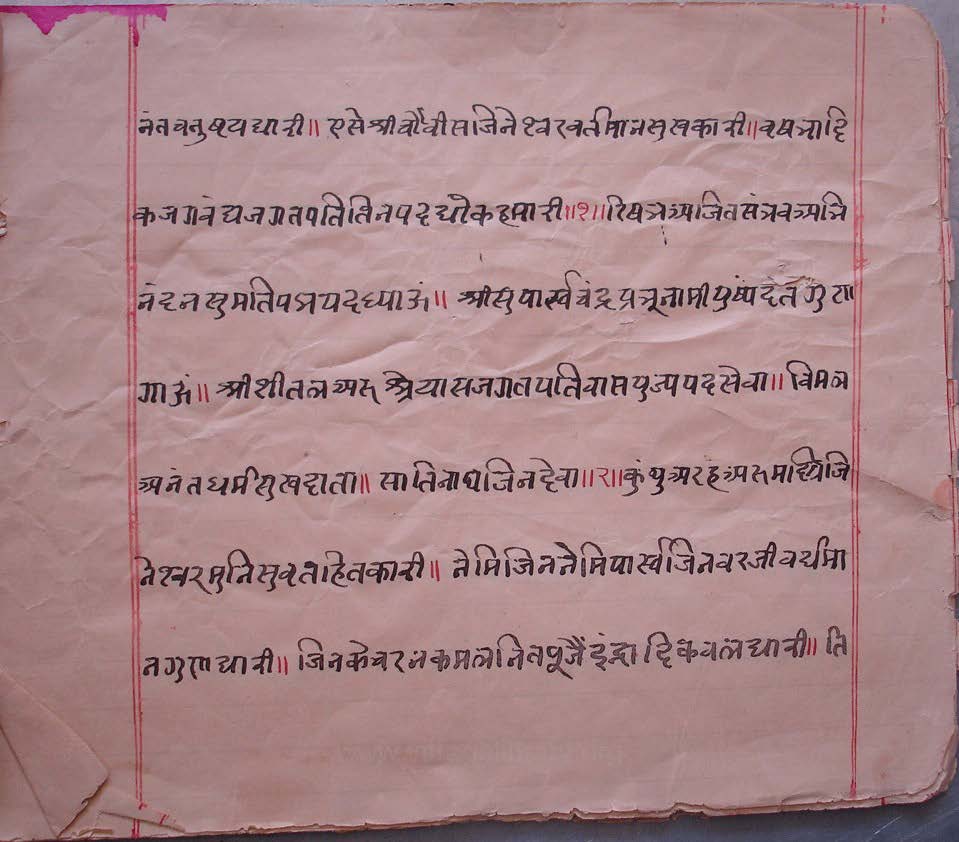 नंतचतुष्टयधारी॥ एसे श्रीचौवीसजिनेश्वरवर्तमानसुखकारी॥ वृषभादि
कजगवंद्यजगतपतितिनपदधोकहमारी॥१॥ रिषभअजितसंभवअभि
नंदनसुमतिपद्मपदध्याऊं॥ श्रीसुपार्स्वचंद्रप्रभूनामीपुष्पदंतगुण
गाऊं॥ श्रीशीतलअरुश्रेयांसजगतपतिवासपुज्यपदसेवा॥ विमल
अनंतधर्मसुखदाता॥ सांतिनाथजिनदेवा॥२॥ कुंथुअरहअरुमल्लिजि
नेश्वरमुनिसुव्रतहितकारी॥ नेमिजिननेमिपार्स्वजिनवरजीवर्धमा
नगुणधारी॥ जिनकेचरनकमलनितपूजैंइंद्रादिकवलधारी॥ ति